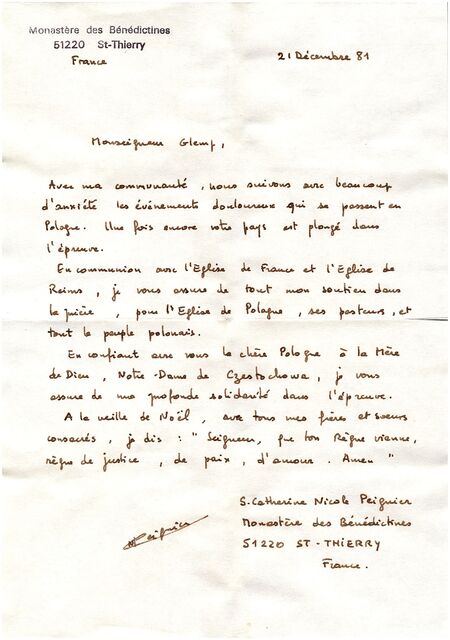 Monastère des Bénédictines
51220 St-Thierry
France
21 Décembre 81
Monseigneur Glemp,
Avec ma communauté, nous suivons avec beaucoup
d'anxiété les événements douloureux qui se passent en
Pologne. Une fois encore votre pays est plongé dans
l'épreuve.
En communion avec l'Eglise de France et l'Eglise de
Reims, je vous assure de tout mon soutien dans
la prière, pour l'Eglise de Pologne, ses pasteurs, et
tout le peuple polonais.
En confiant avec vous la chère Pologne à la Mère
de Dieu, Notre-Dame de Czestochowa, je vous
assure de ma profonde solidarité dans l'épreuve.
A la veille de Noël, avec tous mes frères et soeurs
consacrés, je dis : "Seigneur, que ton Règne vienne,
règne de justice, de paix, d'amour. Amen"
S. Catherine Nicole Peignier
Monastère des Bénédictines
51220 ST-THIERRY
France.
Peignier